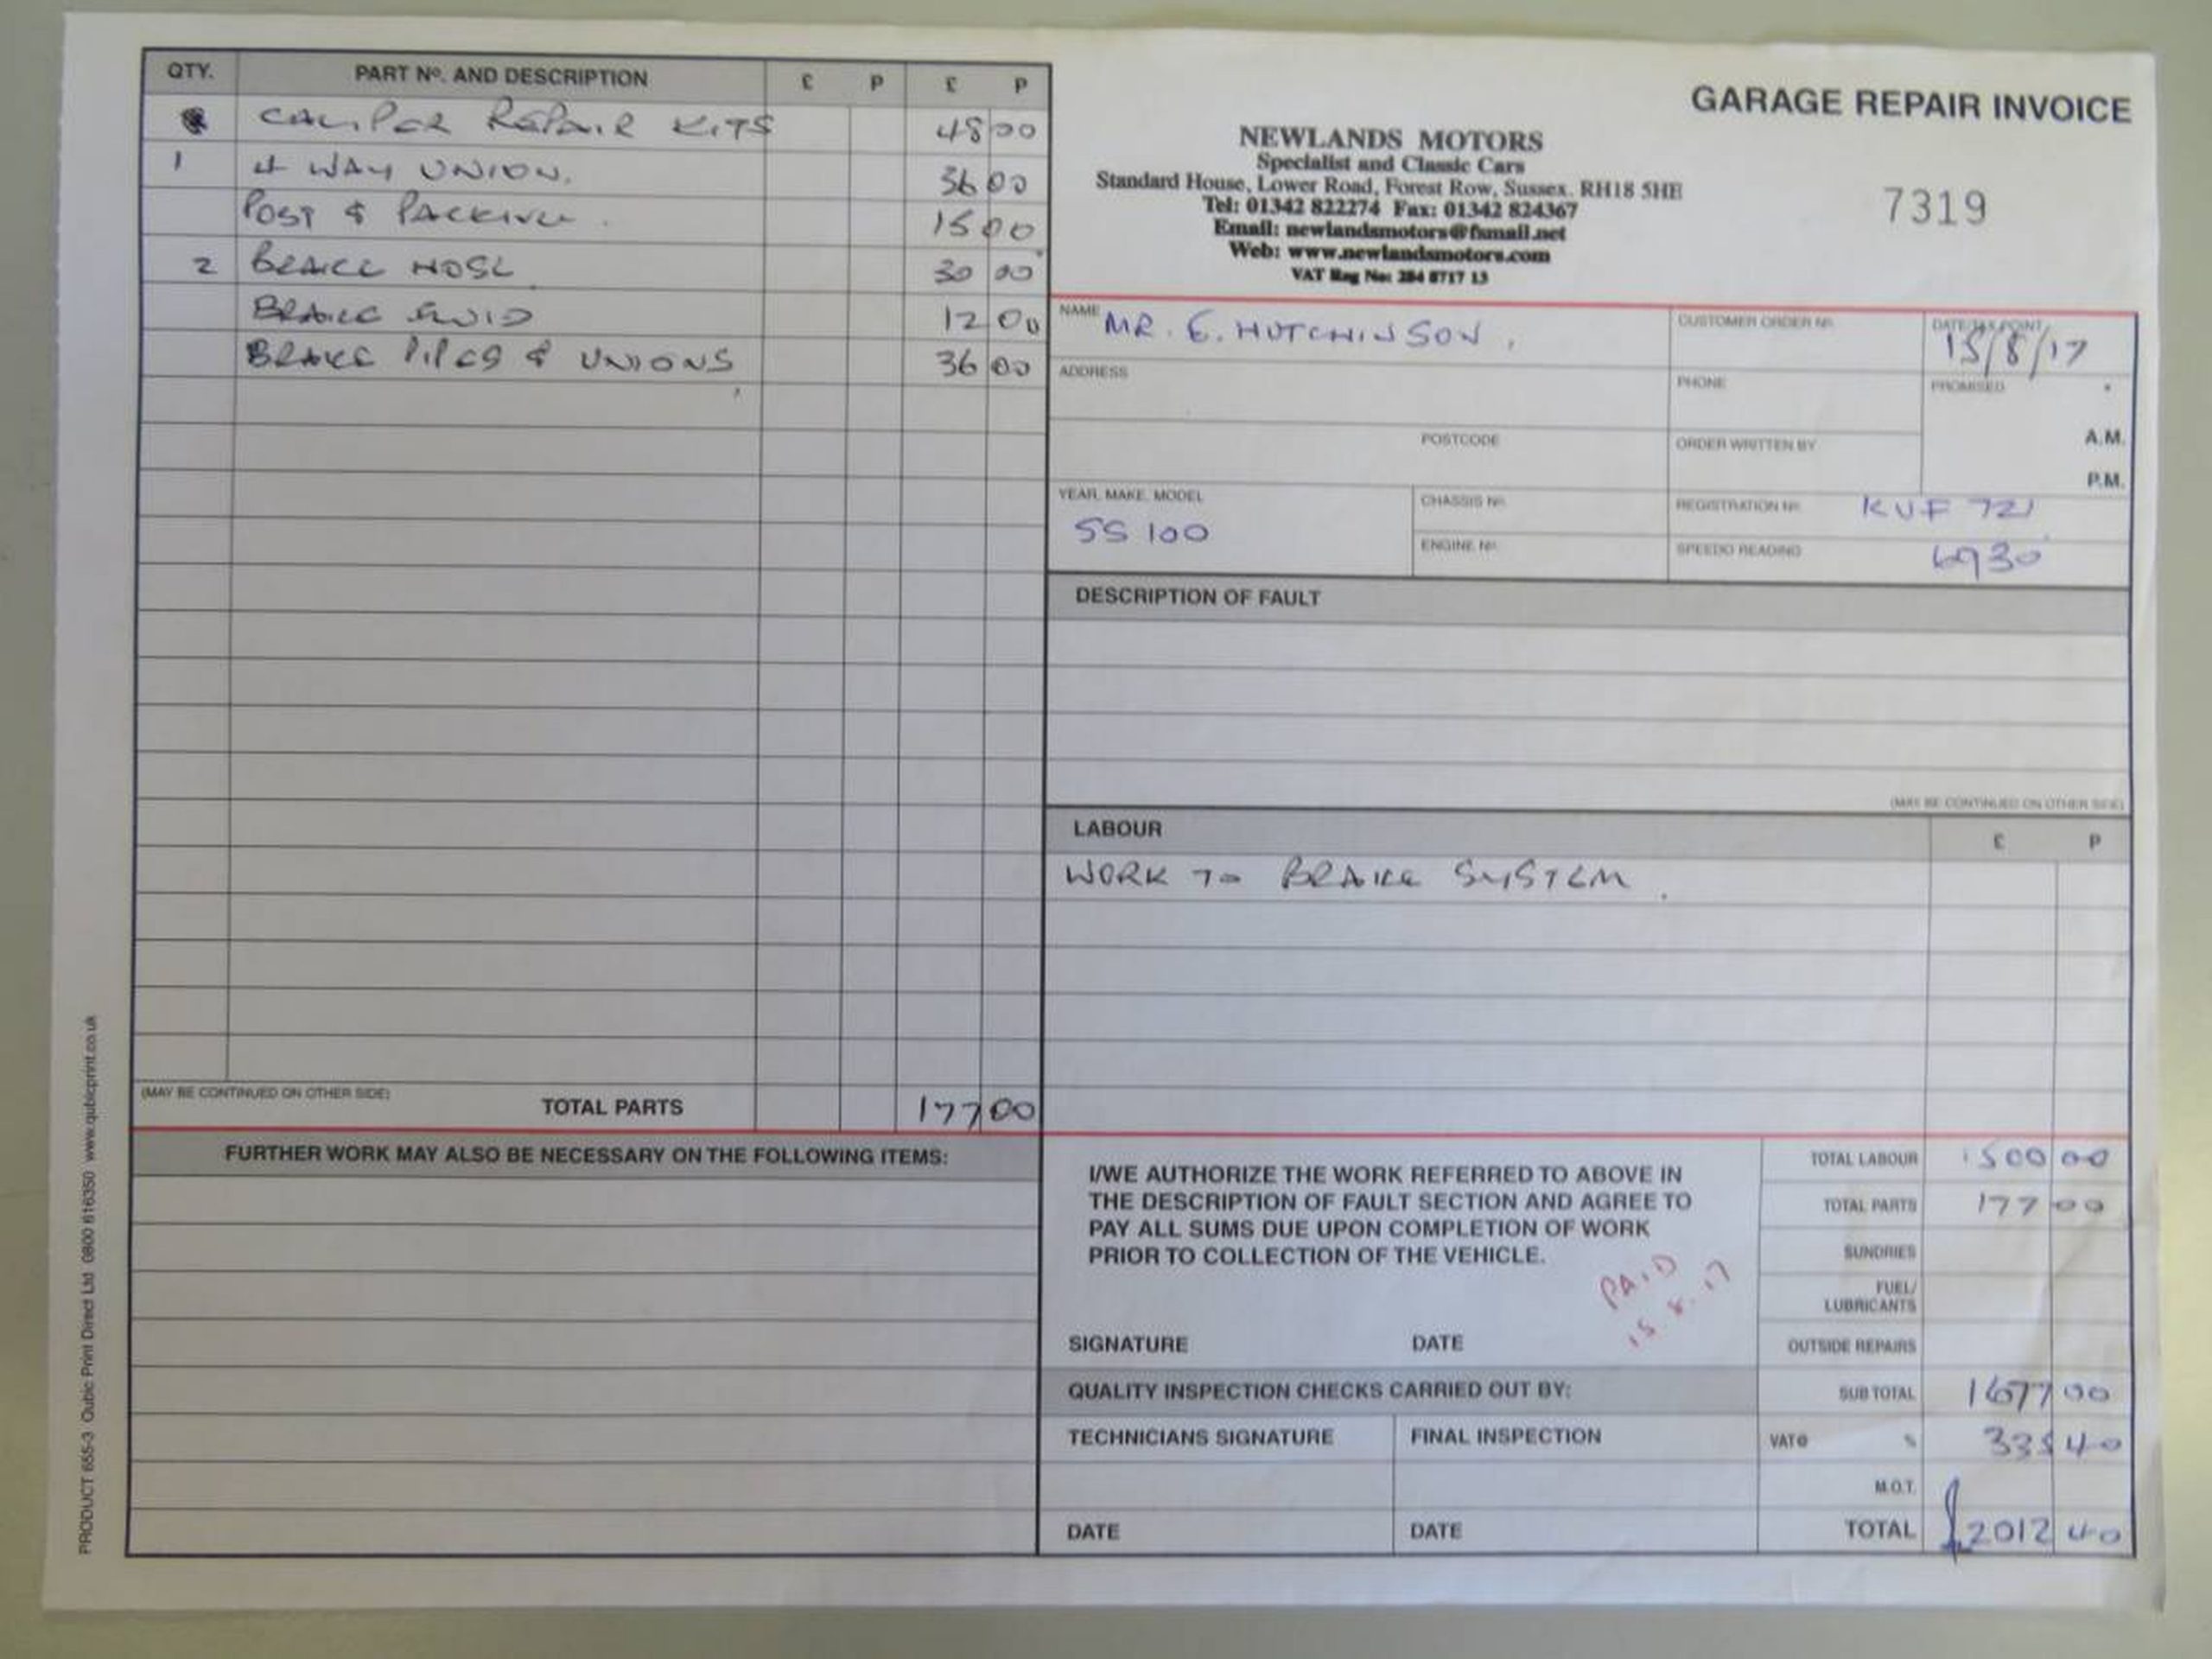 QTY. PART Nº. AND DESCRIPTION £ P £ P
CALIPER REPAIR KITS 48 00
1 4 WAY UNION. 36 00
POST & PACKING. 15 00
2 BRAKE HOSE 30 00
BRAKE FLUID 12 00
BRAKE PIPES & UNIONS 36 00
(MAY BE CONTINUED ON OTHER SIDE) TOTAL PARTS 177 00
FURTHER WORK MAY ALSO BE NECESSARY ON THE FOLLOWING ITEMS:
PRODUCT 655-3 Qubic Print Direct Ltd 0800 616350 www.qubicprint.co.uk
GARAGE REPAIR INVOICE
NEWLANDS MOTORS
Specialist and Classic Cars
Standard House, Lower Road, Forest Row, Sussex. RH18 5HE
Tel: 01342 822274 Fax: 01342 824367
Email: newlandsmotors@fsmail.net
Web: www.newlandsmotors.com
VAT Reg No: 284 8717 13
7319
NAME MR. E. HUTCHINSON. CUSTOMER ORDER Nº. DATE/TAX POINT 15/8/17
ADDRESS PHONE PROMISED
POSTCODE ORDER WRITTEN BY A.M.
P.M.
YEAR, MAKE, MODEL SS 100 CHASSIS Nº. REGISTRATION Nº. KUF 721
ENGINE Nº. SPEEDO READING 6930
DESCRIPTION OF FAULT
(MAY BE CONTINUED ON OTHER SIDE)
LABOUR £ P
WORK TO BRAKE SYSTEM.
I/WE AUTHORIZE THE WORK REFERRED TO ABOVE IN
THE DESCRIPTION OF FAULT SECTION AND AGREE TO
PAY ALL SUMS DUE UPON COMPLETION OF WORK
PRIOR TO COLLECTION OF THE VEHICLE.
PAID
15.8.17
SIGNATURE DATE
QUALITY INSPECTION CHECKS CARRIED OUT BY:
TECHNICIANS SIGNATURE FINAL INSPECTION
DATE DATE
TOTAL LABOUR 1500 00
TOTAL PARTS 177 00
SUNDRIES
FUEL/
LUBRICANTS
OUTSIDE REPAIRS
SUB TOTAL 1677 00
VAT@ % 335 40
M.O.T.
TOTAL £2012 40